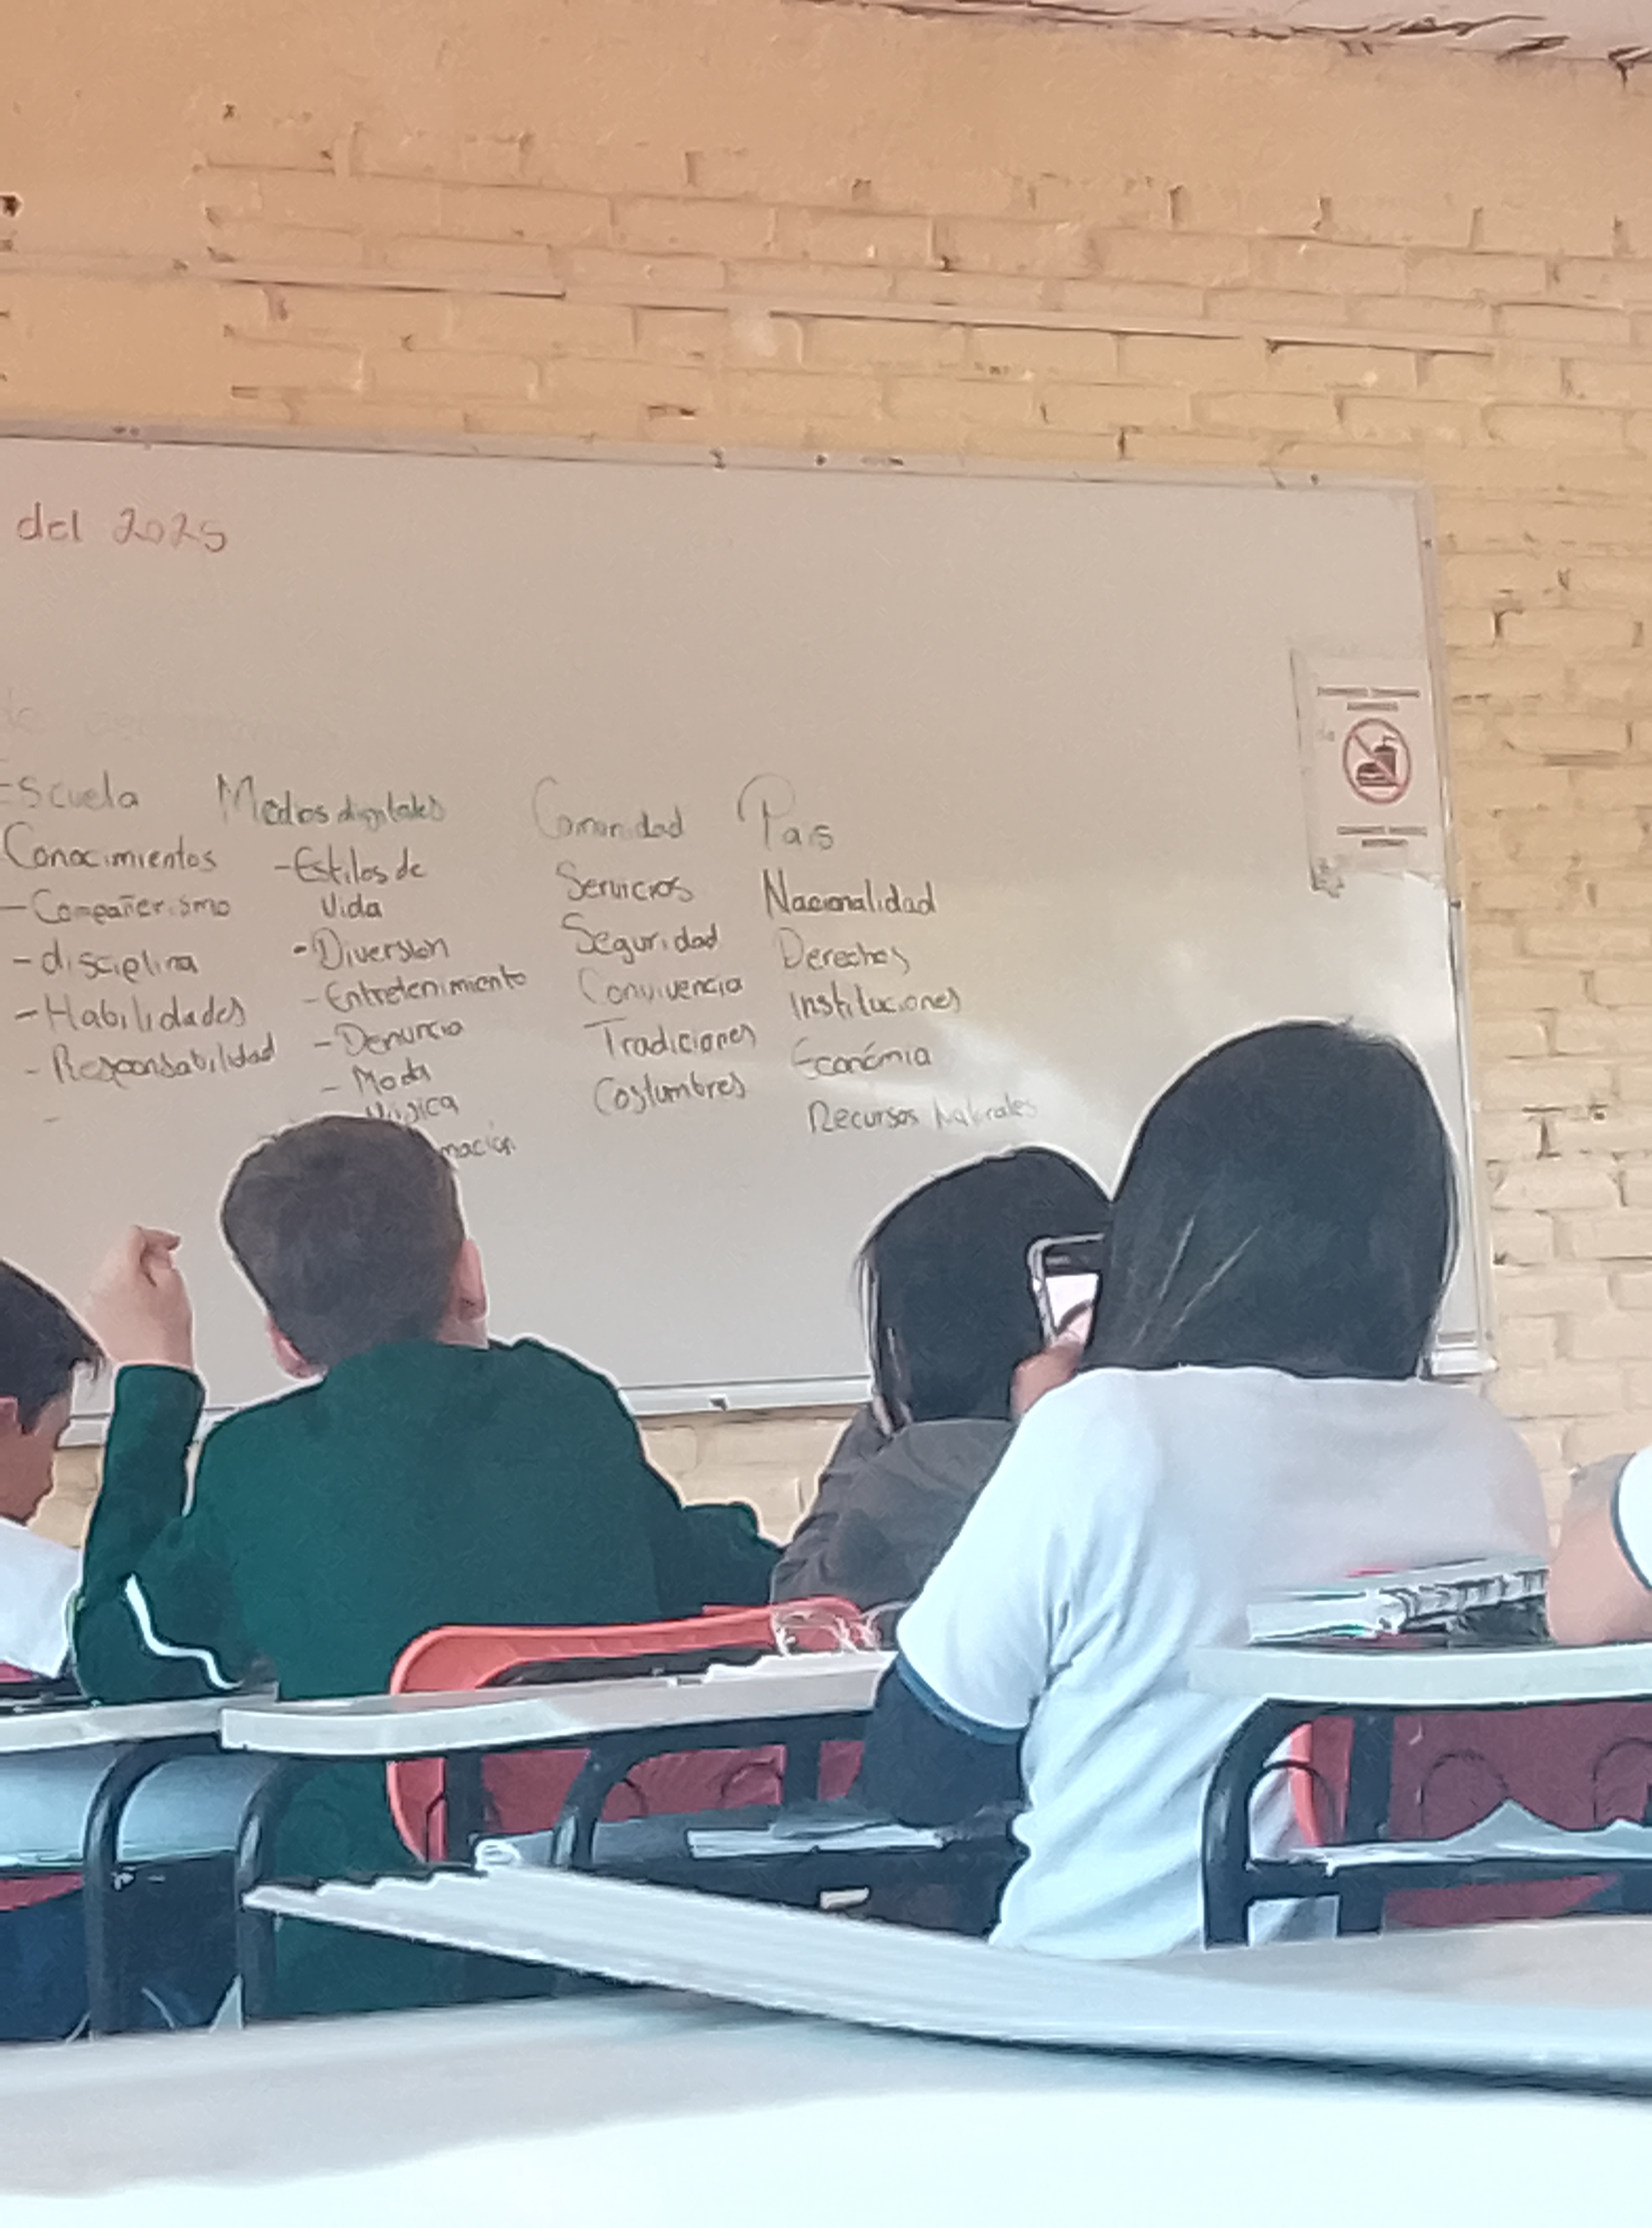 del 2025
Escuela
Conocimientos
- Compañerismo
- disciplina
- Habilidades
- Responsabilidad
-
Medios digitales
- Estilos de
Vida
- Diversion
- Entretenimiento
- Denuncia
- Moda
Música
mación
Comunidad
Servicios
Seguridad
Convivencia
Tradiciones
Costumbres
País
Nacionalidad
Derechos
Instituciones
Económia
Recursos Naturales